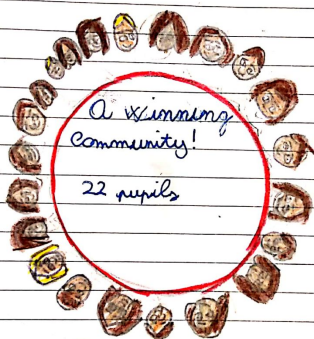 a winning
community!
22 pupils